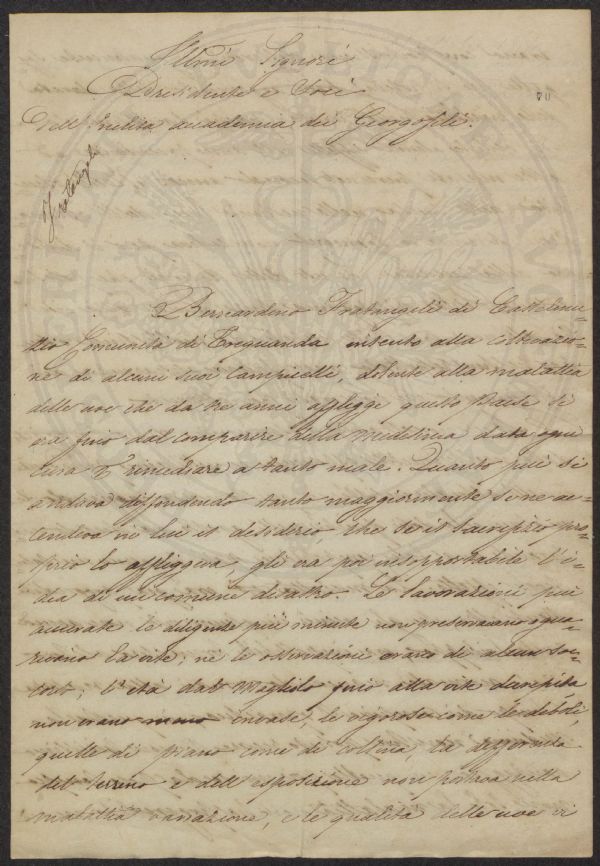 Illmi Signori
Presidente e Soci
Dell'Inclita accademia dei Georgofili.
70
Fratangeli
Bernardino Fratangeli di Castelmu-
zio Comunità di Trequanda intento alla coltivazio-
ne di alcuni suoi Campicelli, dolente alla malattia
delle uve che da tre anni affligge questo Paese si
era fino dal comparire della medesima data ogni
cura di rimediare a tanto male. Quanto più si
andava diffondendo tanto maggiormente si ne ac-
cendeva in lui il desiderio che se il sacrifizio pro-
prio lo affliggeva, gli era poi insopportabile l'i-
dea di un comune disastro. Le lavorazioni più
accurate le diligenze più minute non preservavano o gua-
rivano la vite; nè le osservazioni erano di alcun soc-
corso; l'età dal Magliolo fino alla vite decrepita
non erano meno invase, le vigorose come le deboli,
quelle di piano come di collina, la differenza
del terreno e dell'esposizione non portava nella
malattia variazione, e le qualità delle uve vi